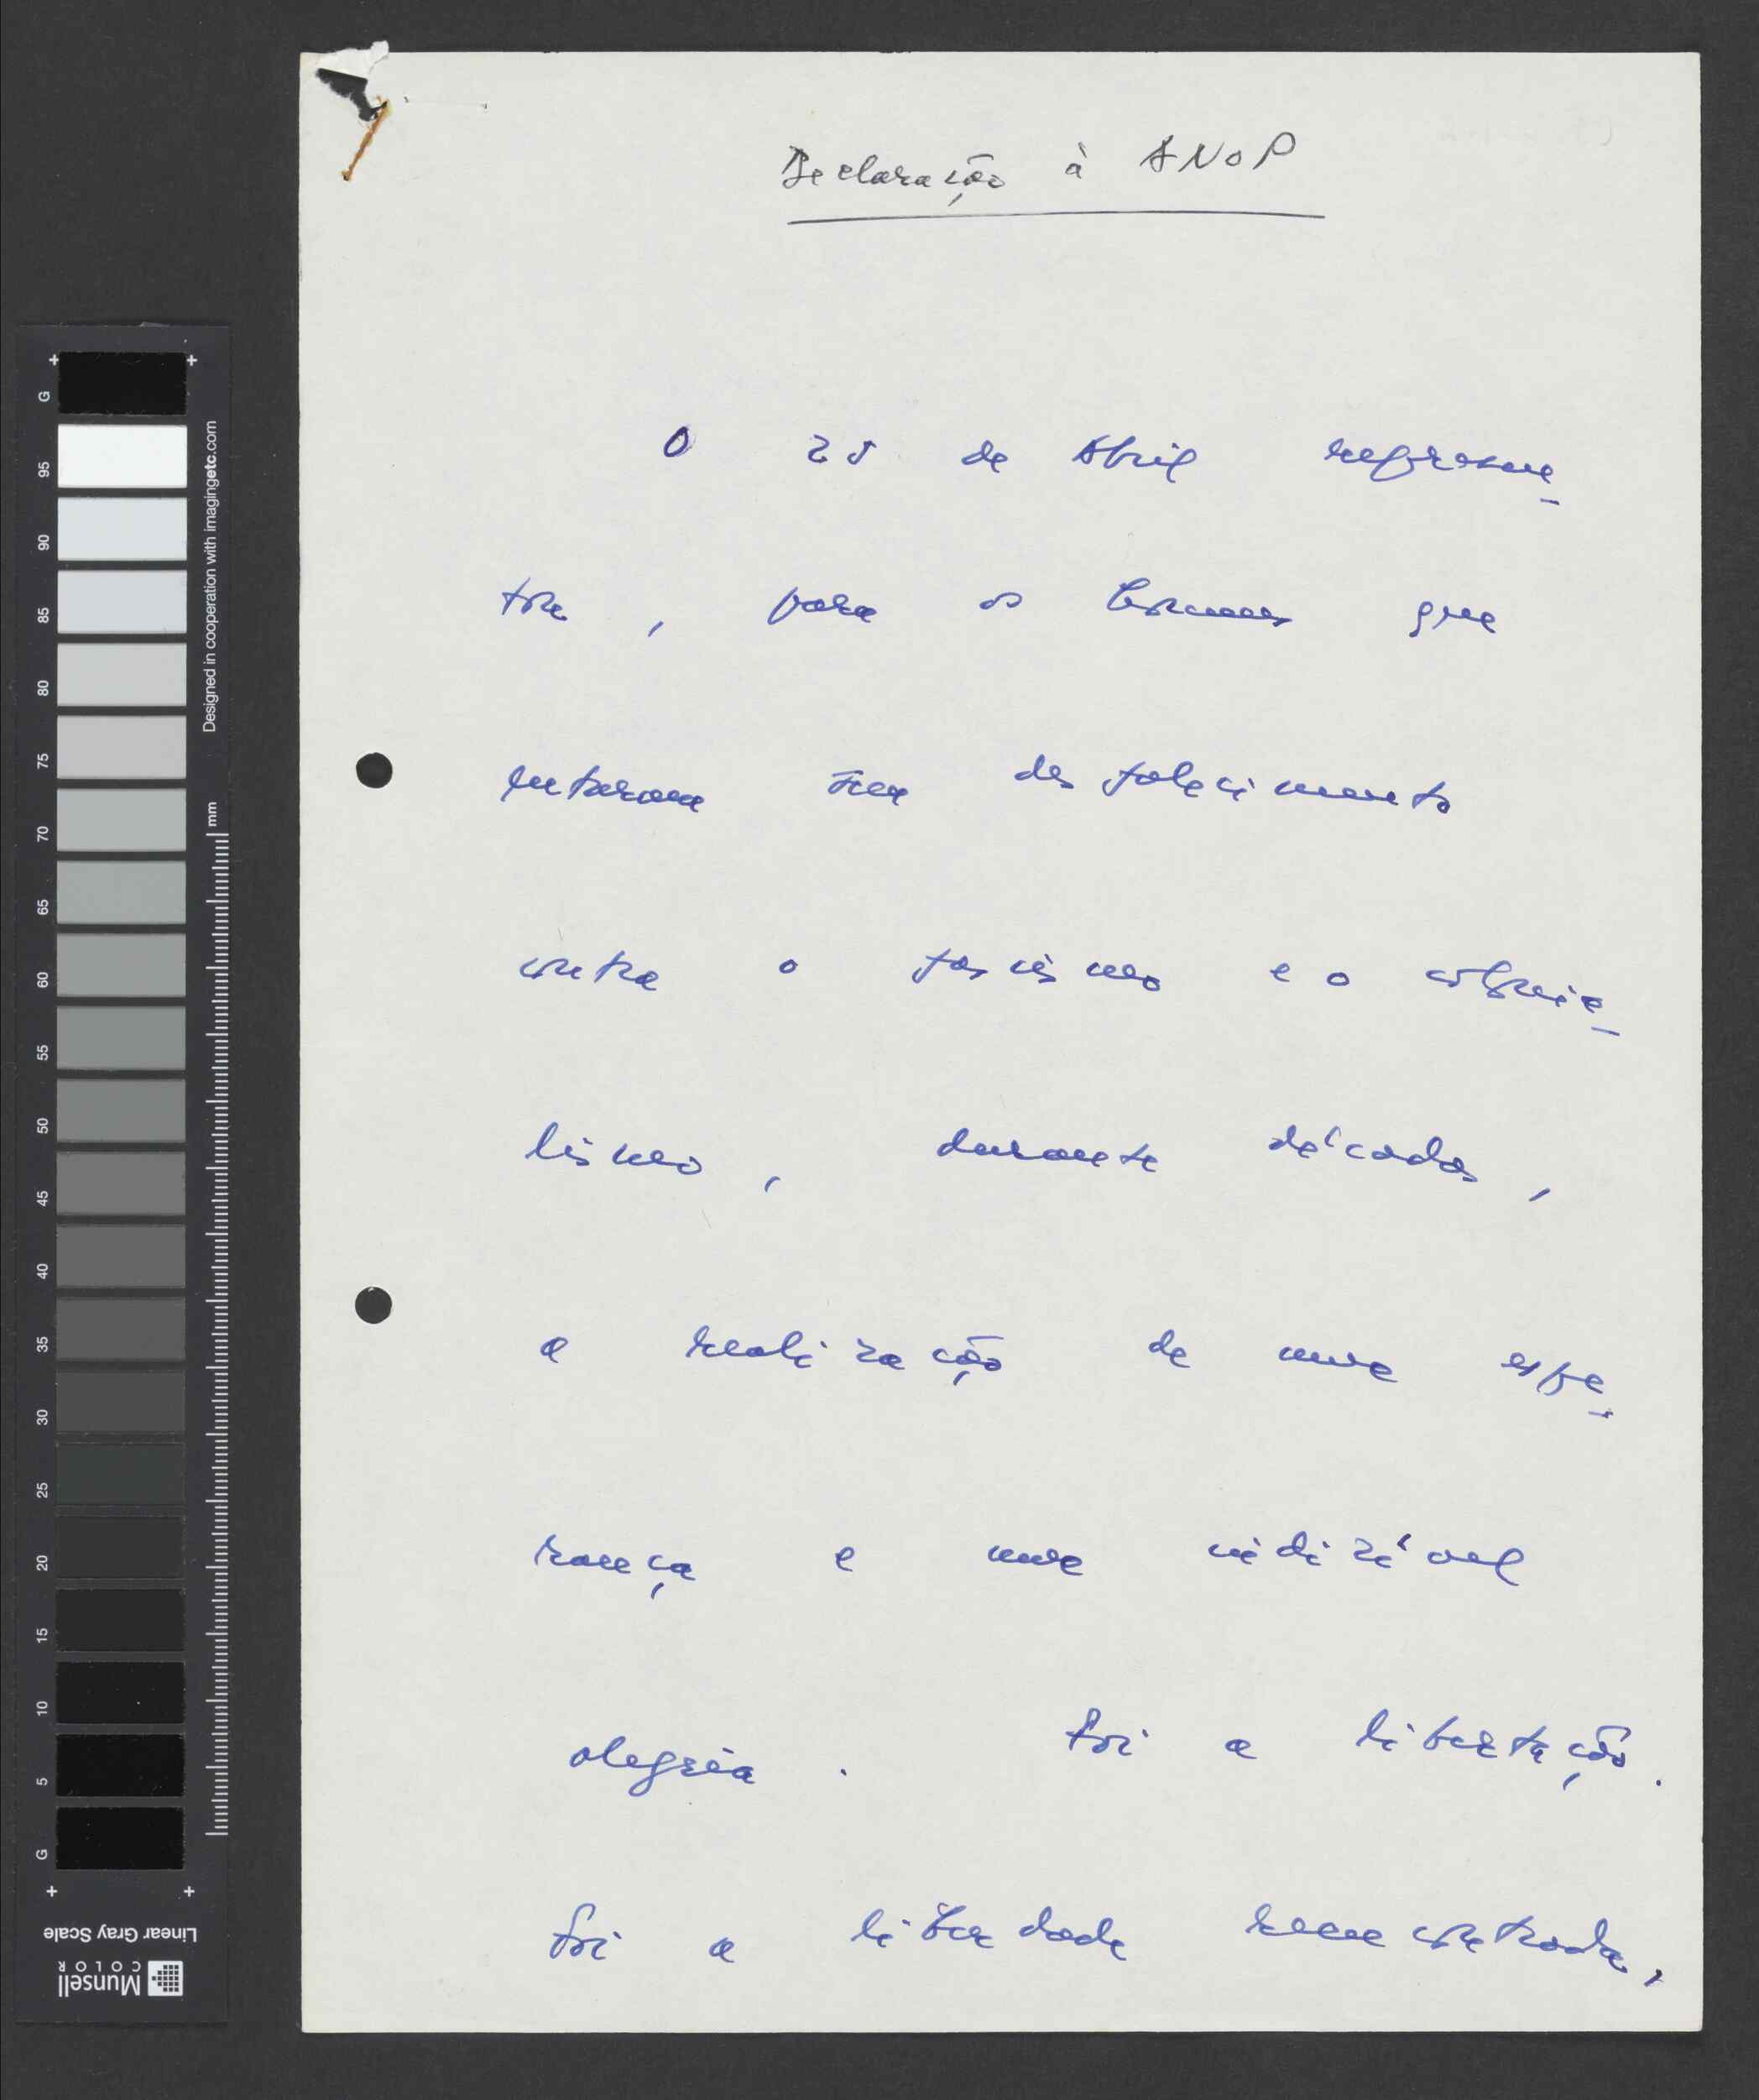 Declaração à ANOP
O 25 de Abril represen-
tou, para os homens que
lutaram sem desfalecimento
contra o fascismo e o colonia-
lismo, durante décadas,
a realização de uma espe-
rança e uma indizível
alegria. Foi a libertação.
Foi a liberdade reencontrada,
G
95
90
85
80
75
70
65
60
55
50
45
40
35
30
25
20
15
10
5
G
Designed in cooperation with imagingetc.com
mm
Linear Gray Scale
Munsell
COLOR